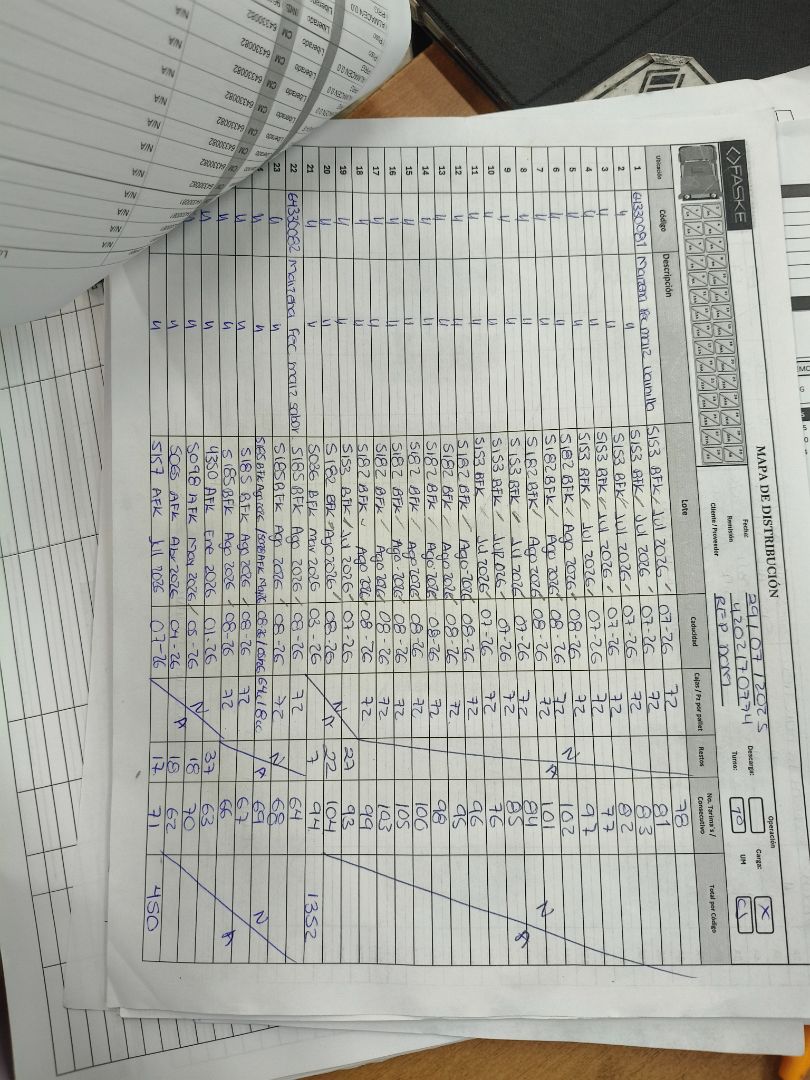 FASKE
MAPA DE DISTRIBUCIÓN
Fecha: 29/07/2025
Remisión 4202170774
Cliente / Proveedor REP MM
Operación
Descarga: Carga: X
Turno: TO UM CJ
Ubicación Código Descripción Lote Caducidad Cajas / Pz por pallet Restos No. Tarima's / Consecutivo Total por Código
1 64330081 Maizena Fec maiz vainilla 5153 BFK / Jul 2026 07-26 72 78
2 " " 5153 BFK / Jul 2026 07-26 72 81
3 " " 5153 BFK / Jul 2026 07-26 72 83
4 " " 5153 BFK / Jul 2026 07-26 72 82
5 " " 5153 BFK / Jul 2026 07-26 72 77
6 " " 5182 BFK / Ago 2026 08-26 72 97
7 " " 5182 BFK / Ago 2026 08-26 72 N A 102
8 " " 5182 BFK / Ago 2026 08-26 72 101 N A
9 " " 5153 BFK / Jul 2026 07-26 72 84
10 " " 5153 BFK / Jul 2026 07-26 72 85
11 " " 5153 BFK / Jul 2026 07-26 72 76
12 " " 5182 BFK / Ago 2026 08-26 72 96
13 " " 5182 BFK / Ago 2026 08-26 72 95
14 " " 5182 BFK / Ago 2026 08-26 72 98
15 " " 5182 BFK / Ago 2026 08-26 72 100
16 " " 5182 BFK / Ago 2026 08-26 72 105
17 " " 5182 BFK / Ago 2026 08-26 72 103
18 " " 5182 BFK / Ago 2026 08-26 72 99
19 " " 5153 BFK / Jul 2026 07-26 N 27 93
20 " " 5182 BFK / Ago 2026 08-26 A 22 104
21 " " 5036 BFK Mar 2026 03-26 7 94 1352
22 64330082 Maizena Fec maiz sabor 5185 BFK Ago 2026 08-26 72 64
23 " " 5185 BFK Ago 2026 08-26 72 N 68
" " 5185 BFK Ago 2026 / AFK 08-26 / 05-26 64 / 8 A 69 N
" " 5185 BFK Ago 2026 08-26 72 67
" " 5185 BFK Ago 2026 08-26 72 66 A
" " 4350 AFK Ene 2026 01-26 37 63
" 5098 AFK May 2026 05-26 N 18 70
" " 5065 AFK Abr 2026 04-26 A 18 62
" 5157 AFK Jul 2026 07-26 17 71 450
N/A
N/A
N/A
N/A
N/A
N/A
64330082 CM Liberado
64330082 CM Liberado
64330082 CM Liberado
64330082 CM Liberado
64330082
64330082
ALMACEN 0.0
Piso